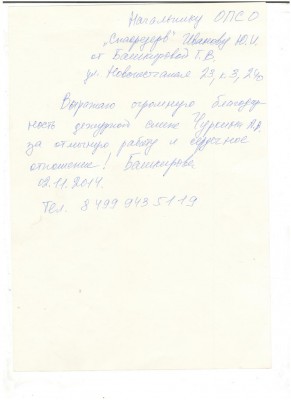 Начальнику ОПСО
"Спасрезерв" Иванову Ю.И.
от Башкировой Т.В.
ул. 23, к.3, 24
Выражаю огромную благодар
ность дежурной смене
за отличную работу и сердечное
отношение! Башкирова
02.11.2014.
Тел. 8 499 943 51 19